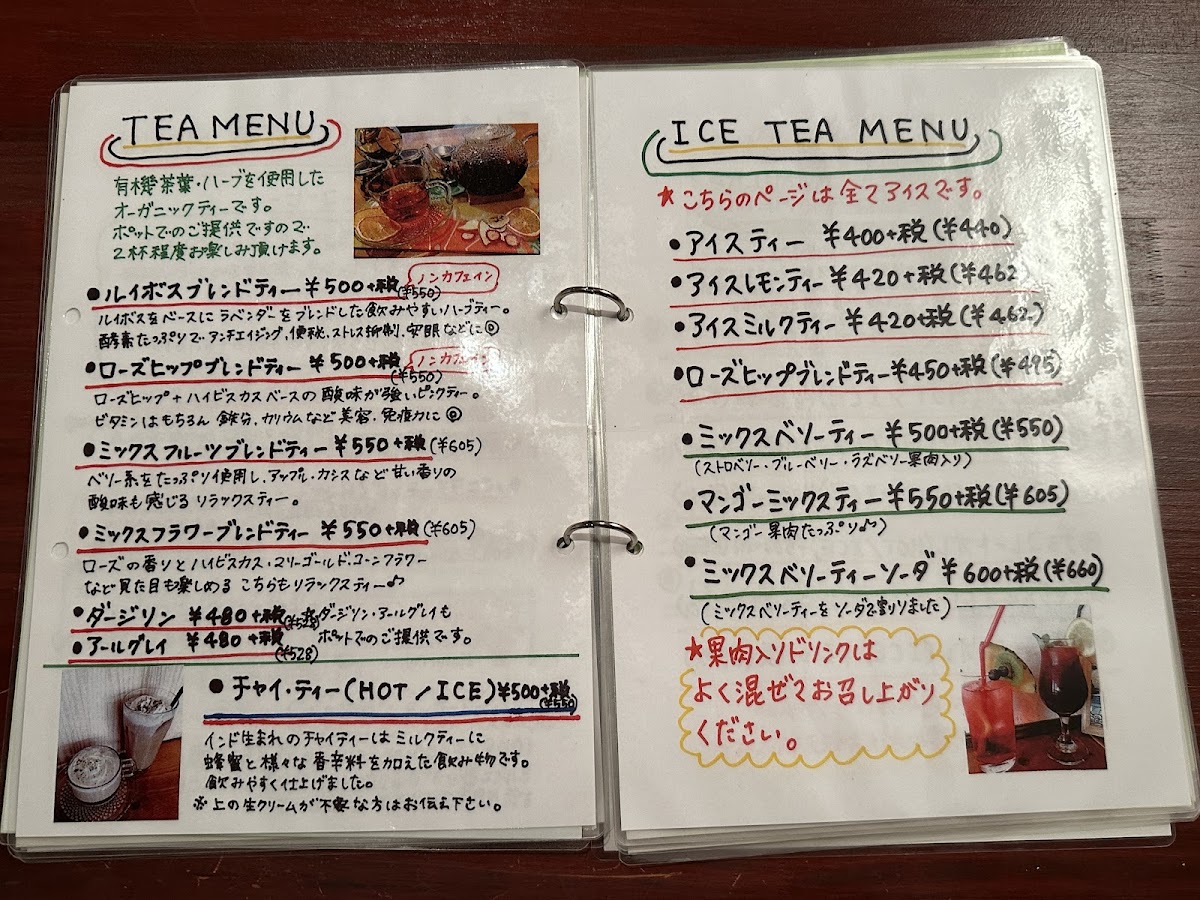 TEA MENU
有機茶葉・ハーブを使用した
オーガニックティーです。
ポットでのご提供ですので
2杯程度お楽しみ頂けます。
●ルイボスブレンドティー ¥500+税 ノンカフェイン
(¥550)
ルイボスをベースにラベンダーをブレンドした飲みやすいハーブティー。
酵素たっぷりでアンチエイジング、便秘、ストレス抑制、安眠などに◎
●ローズヒップブレンドティー ¥500+税 ノンカフェイン
(¥550)
ローズヒップ+ハイビスカスベースの酸味が強いピンクティー。
ビタミンはもちろん鉄分、カリウムなど美容・免疫力に◎
●ミックスフルーツブレンドティー ¥550+税 (¥605)
ベリー系をたっぷり使用し、アップル・カシスなど甘い香りの
酸味も感じるリラックスティー。
●ミックスフラワーブレンドティー ¥550+税 (¥605)
ローズの香りとハイビスカス・マリーゴールド・コーンフラワー
など見た目も楽しめるこちらもリラックスティー♪
●ダージリン ¥480+税 (¥528)
●アールグレイ ¥480+税 (¥528)
※ダージリン・アールグレイも
ポットでのご提供です。
●チャイ・ティー(HOT/ICE) ¥500+税
(¥550)
インド生まれのチャイティーはミルクティーに
蜂蜜と様々な香辛料を加えた飲み物です。
飲みやすく仕上げました。
※上の生クリームが不要な方はお伝え下さい。
ICE TEA MENU
★こちらのページは全てアイスです。
●アイスティー ¥400+税(¥440)
●アイスレモンティー ¥420+税(¥462)
●アイスミルクティー ¥420+税(¥462)
●ローズヒップブレンドティー ¥450+税(¥495)
●ミックスベリーティー ¥500+税(¥550)
(ストロベリー・ブルーベリー・ラズベリー果肉入り)
●マンゴーミックスティー ¥550+税(¥605)
(マンゴー果肉たっぷり♪)
●ミックスベリーティーソーダ ¥600+税(¥660)
(ミックスベリーティーをソーダで割りました)
★果肉入りドリンクは
よく混ぜてお召し上がり
ください。